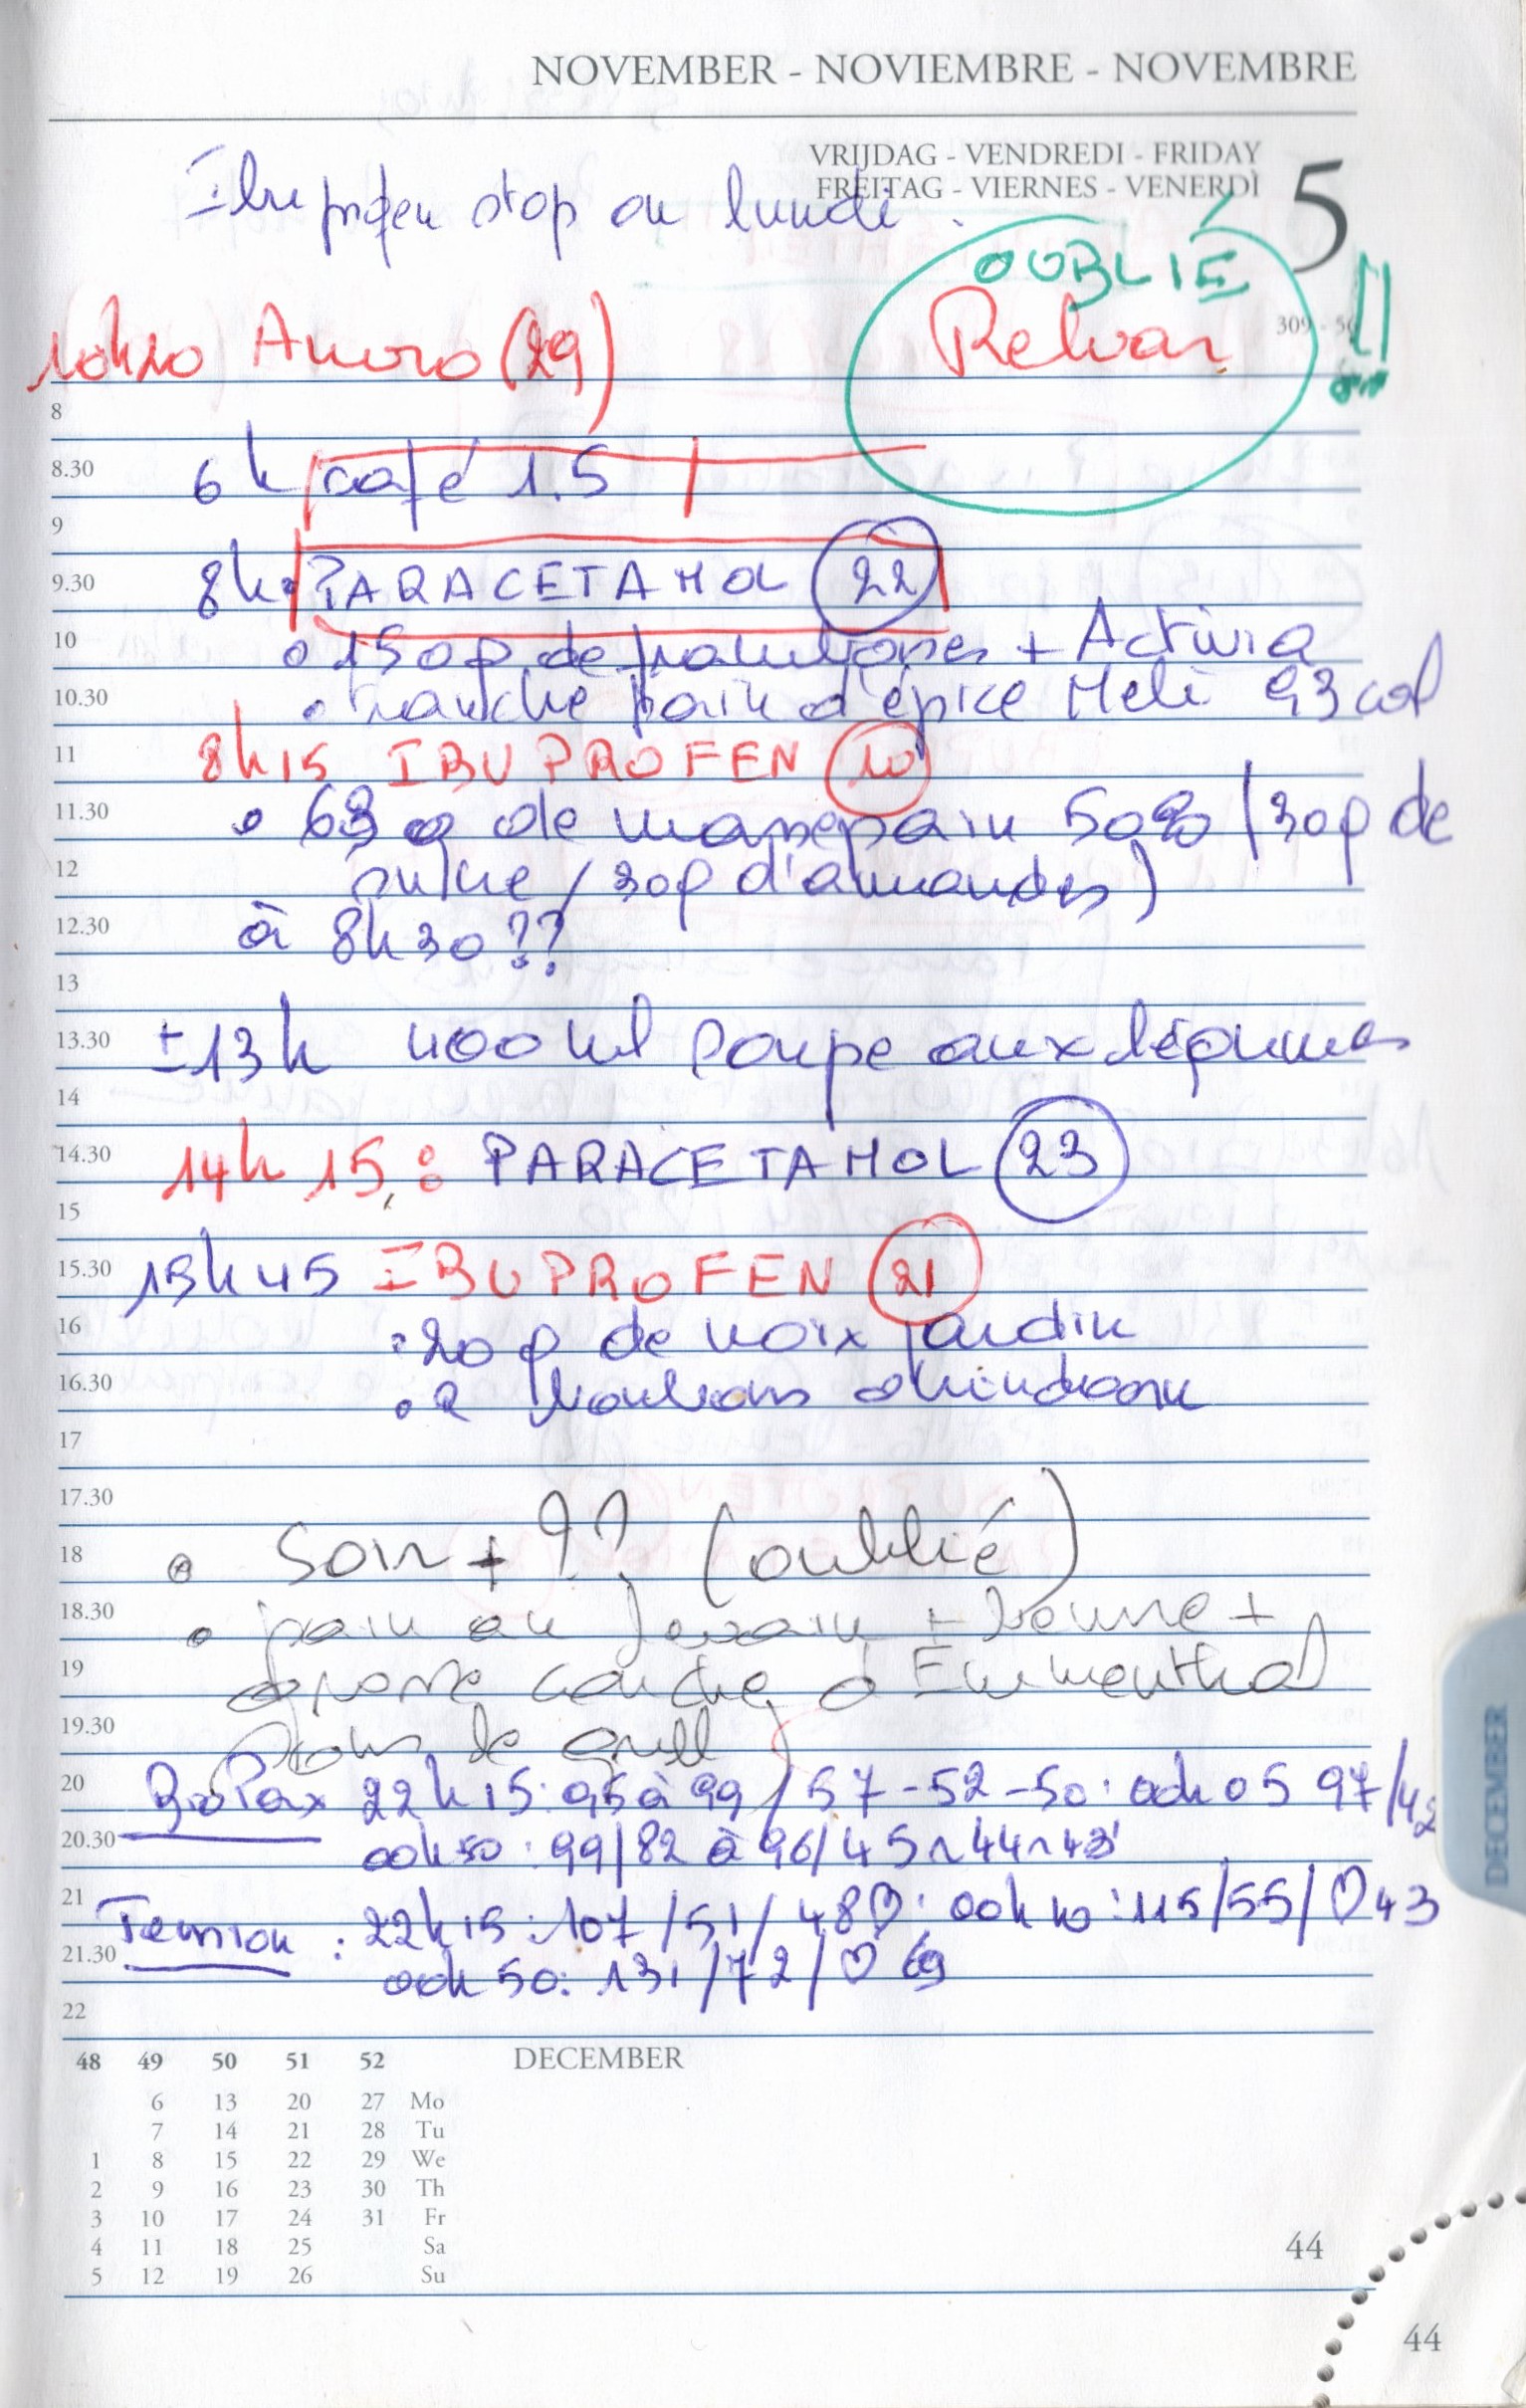 NOVEMBER - NOVIEMBRE - NOVEMBRE
VRIJDAG - VENDREDI - FRIDAY
FREITAG - VIERNES - VENERDÌ
5
Ibuprofen stop au lundi.
OUBLIÉ !!
309 - 56
10h20 Anoro (29) Relvar
8
8.30 6h café 1.5
9
9.30 8h. PARACETAMOL (22)
10 • 150g de + Activia
10.30 • tranche pain d'épice Meli 93 cal
11 8h15 IBUPROFEN (10)
11.30 • 63 g de massepain 50% (30g de
12 sucre / 30g d'amandes)
12.30 à 8h30 ??
13
13.30 ±13h 400 ml soupe aux légumes
14
14.30 14h15 : PARACETAMOL (23)
15
15.30 15h45 IBUPROFEN (21)
16 • 20 g de noix jardin
16.30 • 2
17
17.30
18 • Soir + ?? (oublié)
18.30 • pain au levain + beurre +
19 grosse couche d'Emmenthal
19.30 dans le grill
20 22h15 : 95 à 99 / 57 - 52 - 50 : 00h05 97/42
20.30 00h50 : 99/82 à 96/45 ~ 44 ~ 43
21 Tension : 22h15 : 107 / 51 / 48 ♡ : 00h10 : 115/55/ ♡ 43
21.30 00h50 : 131/72/ ♡ 69
22
48 49 50 51 52 DECEMBER
6 13 20 27 Mo
7 14 21 28 Tu
1 8 15 22 29 We
2 9 16 23 30 Th
3 10 17 24 31 Fr
4 11 18 25 Sa
5 12 19 26 Su
44
44
DECEMBER